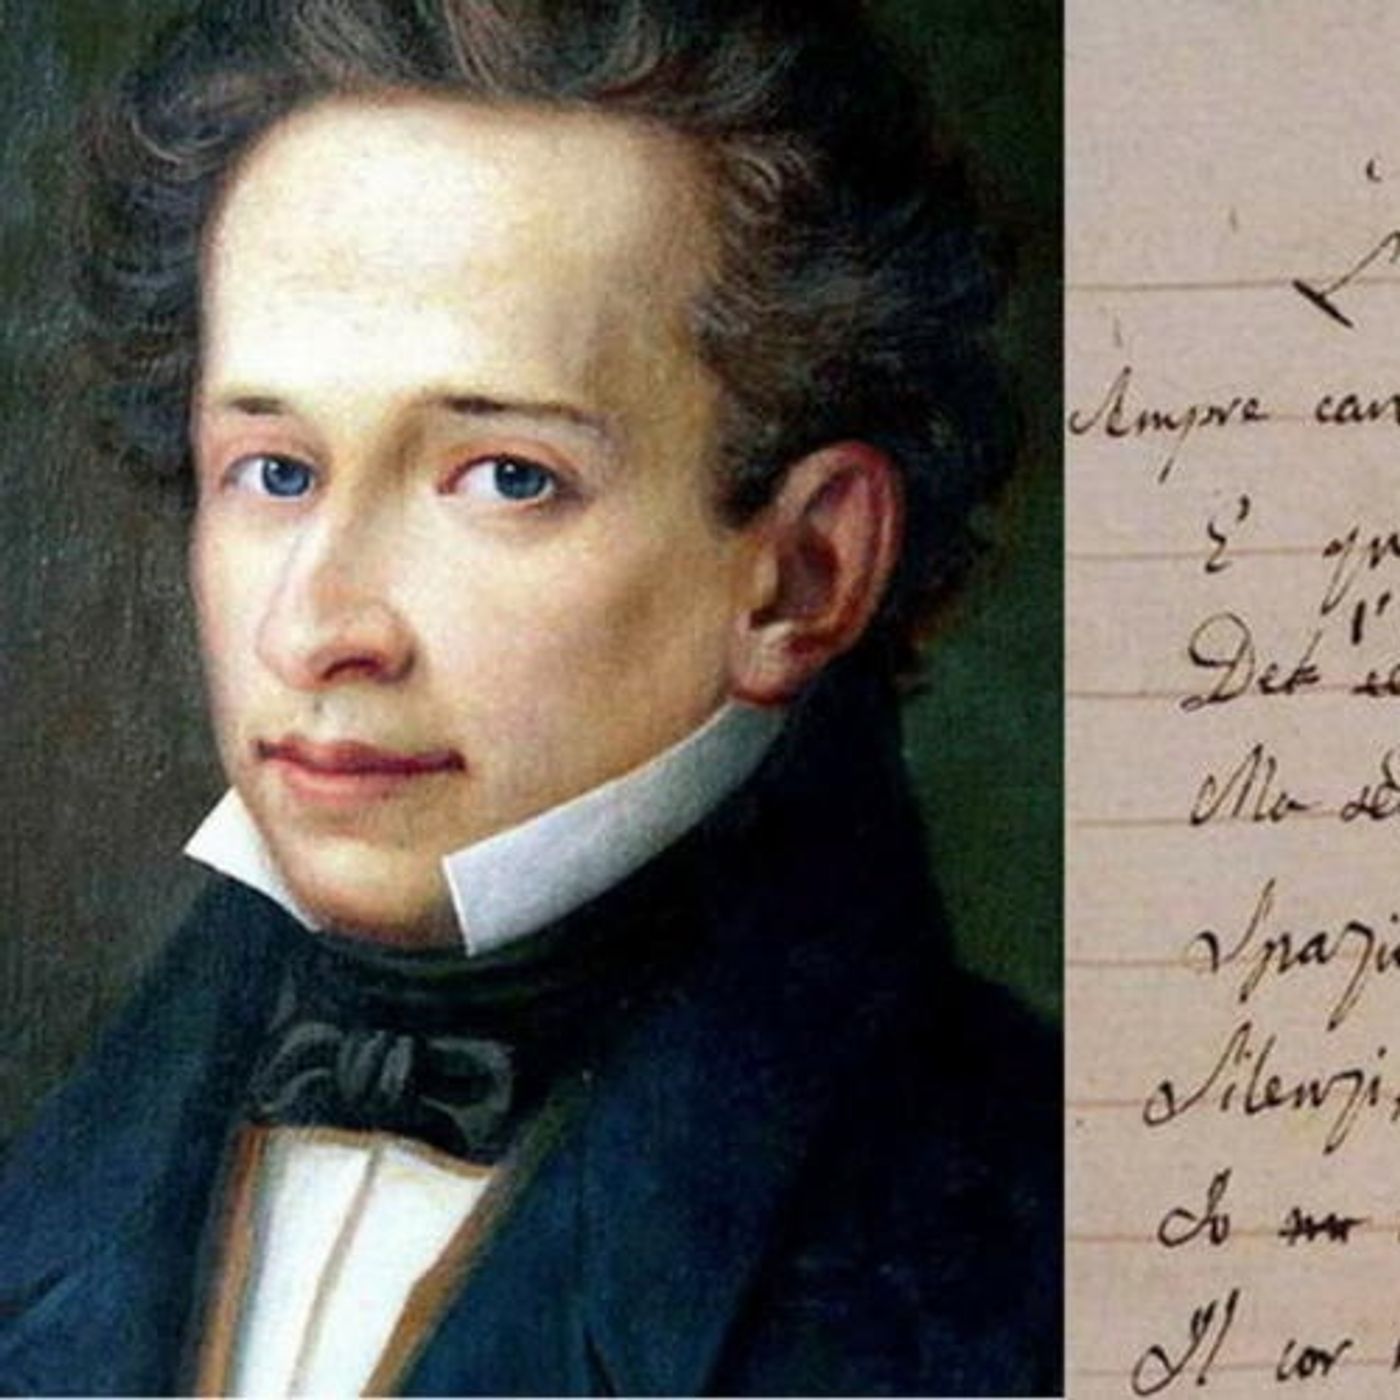 Sempre car
E qu
l'
Del
Ma se
Spazi
Silenzi
Io
Il cor